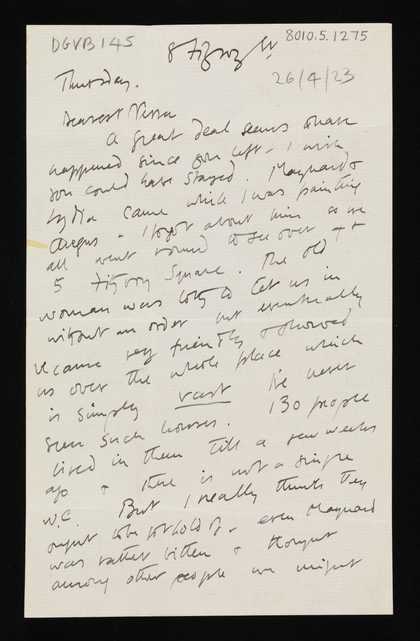 DGVB145
8010.5.1275
8 Fitzroy St
Thursday.
26/4/23
Dearest Nessa
A great deal seems to have
happened since you left - I wish
you could have stayed. Maynard &
Lydia came while I was painting
Angus - I forgot about him as we
all went round to see over 44
5 Fitzroy Square. The old
woman was loth to let us in
without an order but eventually
became very friendly & showed
us over the whole place which
is simply vast I've never
seen such houses. 130 people
lived in them till a few weeks
ago & there is not a single
W.C. But I really think they
ought to be got hold of - even Maynard
was rather bitten & thought
among other people we might